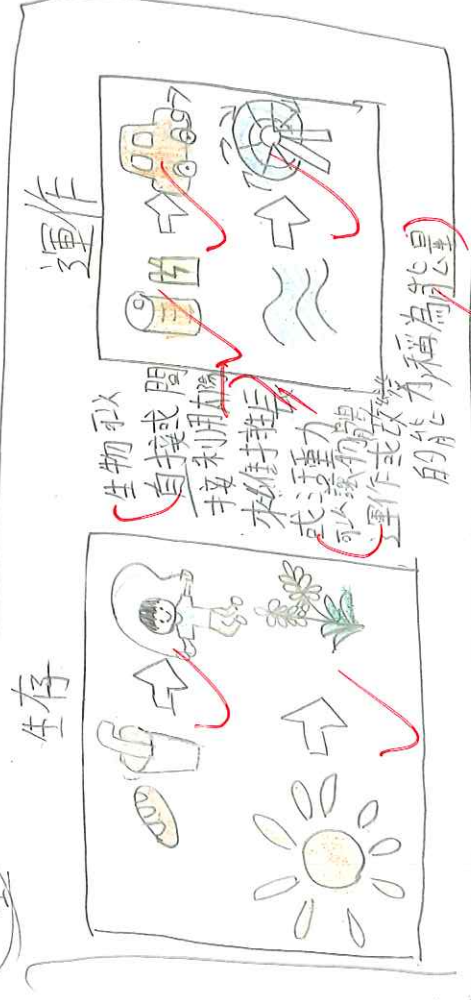 生存
運作
生物可以
直接或間
接利用太陽
來維持生
可以讓物體
運作或改變
的能力,稱為能量